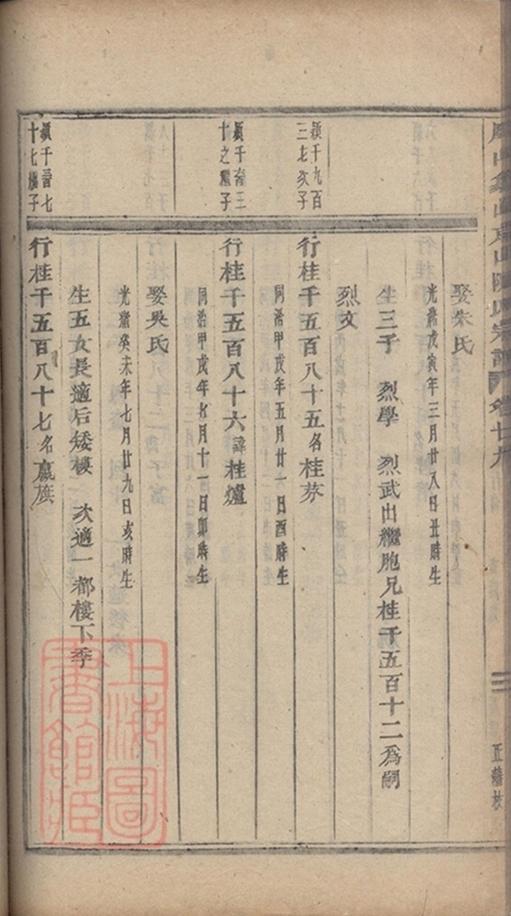 娶朱氏
光緒戊寅年三月廿八日丑時生
生三子 烈學 烈武出繼胞兄桂千五百十二為嗣
烈文
穎千九百
三七次子
行桂千五百八十五名桂芬
同治甲戌年五月廿一日酉時生
十之繼子
行桂千五百八十六諱桂爐
同治甲戌年七月十一日卯時生
娶吳氏
光緒癸未年七月廿九日亥時生
生五女長適后矮樓 次適一都樓下季
十七繼子
行桂千五百八十七名嬴旗
上海圖
書館藏